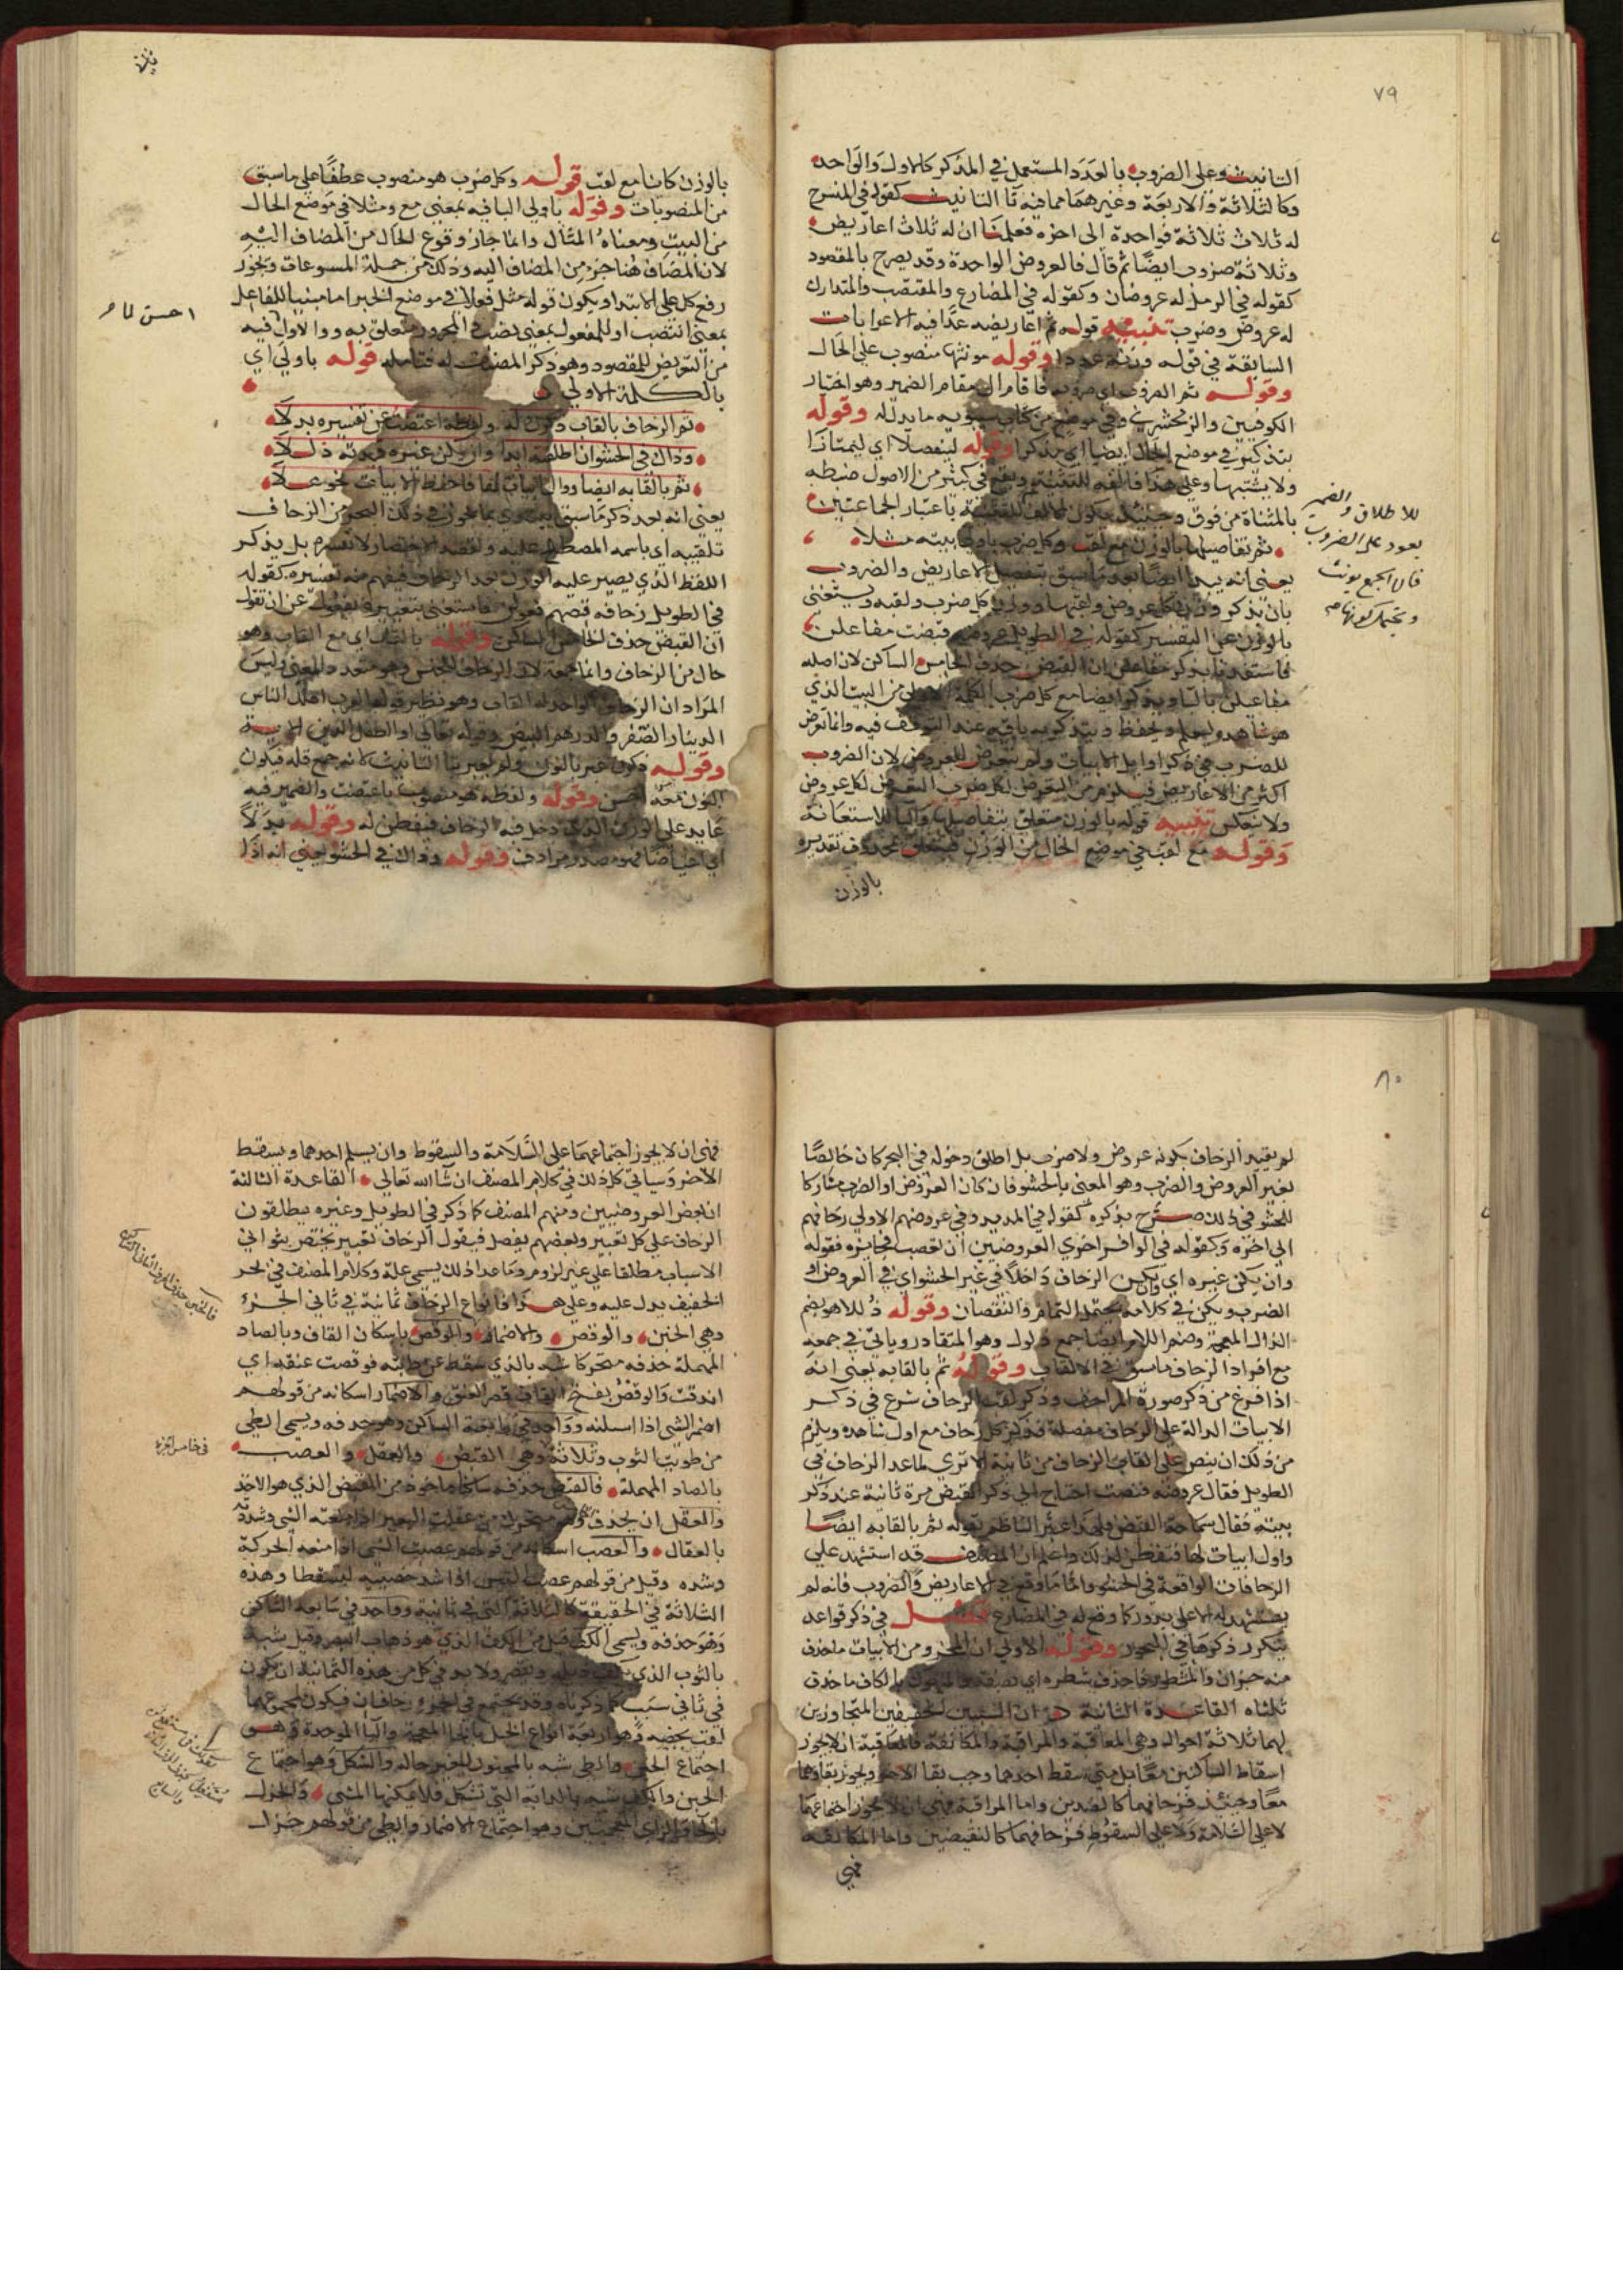 ٧٩
التانيث وعلى الضروب بالعدد المستعمل في المذكر كالاول والواحد
وكالثلاثة والاربعة وغيرهما مما فيه تا التانيث كقوله في المنسرح
له ثلاث ثلاثة فواحدة الى اخره فعلمنا ان له ثلاث اعاريض
وثلاثة ضروب ايضا ثم قال فالعروض الواحدة وقد يصرح بالمقصود
كقوله في الرمل له عروضان وكقوله في المضارع والمقتضب والمتدارك
له عروض وضرب تنبيه قوله ثم اعاريضه عدا فيه الاعرابات
السابقة في قوله وزنه عددا وقوله مونثها منصوب على الحال
وقوله ثم الضروب اي ضروبه فاقام ال مقام الضمير وهو اختيار
الكوفيين والزمخشري وفي موضع من كتاب سيبويه ما يدل له وقوله
بتذكير في موضع الحال ايضا اي مذكرا وقوله لينفصلا اي ليمتازا
ولا يشتبها وعلى هذا فالفه للتثنية ويقع في كثير من الاصول ضبطه
بالمثناة من فوق وحينئذ يكون الالف للتثنية باعتبار الجماعتين
ثم تفاصيلها بالوزن مع لقب وكل ضرب باولي بيته مثلا
يعني انه يبدا ايضا بعد ما سبق بتفصيل الاعاريض والضروب
بان يذكر وزن كل عروض ولقبها ووزن كل ضرب ولقبه ويستغنى
بالوزن عن التفسير كقوله في الطويل عروضه قبضت مفاعلن
فاستفدنا بذكر مفاعلن ان القبض حذف الخامس الساكن لان اصله
مفاعيلن باليا ويذكر ايضا مع كل ضرب الكلمة الاولى من البيت الذي
هو شاهده ليعلم ويحفظ ويتذكر به باقيه عند التوقف فيه وانما تعرض
للضرب في ذكر اوايل الابيات ولم يتعرض للعروض لان الضروب
اكثر من الاعاريض فيلزم من التعرض لكل ضرب التعرض لكل عروض
ولا ينعكس تنبيه قوله بالوزن متعلق بتفاصيلها والبا للاستعانة
وقوله مع لقب في موضع الحال من الوزن فيتعلق بمحذوف تقديره
بالوزن
للاطلاق والضمير
يعود على الضروب
فان الجمع يونث
بالوزن كاينا مع لقب قوله وكل ضرب هو منصوب عطفا على ما سبق
من المنصوبات وقوله باولي البا فيه بمعنى مع ومثلا في موضع الحال
من البيت ومعناه المثال وانما جاز وقوع الحال من المضاف اليه
لان المضاف هنا جزء من المضاف اليه وذلك من جملة المسوغات ويجوز
رفع كل على الابتدا ويكون قوله مثل فعلا في موضع الخبر اما مبنيا للفاعل
بمعنى انتصب او للمفعول بمعنى نصب في المجرور متعلق به والاول فيه
من التعريض للمقصود وهو ذكر المضاف له فتامله قوله باولي اي
بالكلمة الاولى
احسن
ثم الزحاف بالقاب دكون له ولفظه اعتضت عن تفسيره بدلا
وذاك في الحشوان اطلقته ابدا وان يكن غيره قيدته ذللا
ثم بالقابه ايضا واول ابيات لها فاحفظ الابيات
يعني انه بعد ذكر ما سبق ياتي بما يجوز في ذلك البحر من الزحاف
تلقيبه اي باسمه المصطلح عليه ولقصد الاختصار لا يفسره بل يذكر
اللفظ الذي يصير عليه الوزن بعد الزحاف فيفهم منه تفسيره كقوله
في الطويل زحافه قبضهم فعولن فاستغنى بتعبيره بفعول عن ان يقول
ان القبض حذف الخامس الساكن وقوله بالقاب اي مع القاب وهو
حال من الزحاف وانما جمعه لان الزحاف للجنس وهو متعدد المعنى وليس
المراد ان الزحاف الواحد له القاب وهو نظير قول العرب اهلك الناس
الدينار الصفر والدرهم البيض وقوله تعالى او الطفل الذين الاية
وقوله دكون عبر بالنون ولم يعبر بتا التانيث لانه جمع قلة فيكون
النون معه احسن وقوله ولفظه هو منصوب باعتضت والضمير فيه
عايد على الوزن الذي دخل فيه الزحاف فتفطن له وقوله بدلا
اي اعتياضا فهو مصدر مرادف وقوله وذاك في الحشو يعني انه اذا
٨٠
لم يقيد الزحاف بكونه عروض ولا ضرب بل اطلق دخوله في البحر كان خالصا
بغير العروض والضرب وهو المعني بالحشو فان كان العروض او الضرب مشاركا
للحشو في ذلك صرح بذكره كقوله في المديد وفي عروضهم الاولى زحافهم
الى اخره وكقوله في الوافر اخرى العروضيين ان تعصب فجايزه فقوله
وان يكن غيره اي وان يكن الزحاف داخلا في غير الحشو اي في العروض او
الضرب ويكن في كلامه يحتمل التمام والنقصان وقوله ذللا هو بضم
الذال المعجمة وضم اللام ايضا جمع ذلول وهو المنقاد وياتي في جمعه
مع افراد الزحاف ما سبق في الالقاب وقوله ثم بالقابه يعني انه
اذا فرغ من ذكر صورة المزاحف وذكر لقب الزحاف شرع في ذكر
الابيات الدالة على الزحاف مفصلة فذكر كل زحاف مع اول شاهده ويلزم
من ذلك ان ينص على القاب الزحاف مرة ثانية الا ترى لما عد الزحاف في
الطويل فقال عروضه قبضت احتاج الى ذكر القبض مرة ثانية عند ذكر
بيته فقال سماحة القبض ولهذا عبر الناظم بقوله ثم بالقابه ايضا
واول ابيات لها فتفطن لذلك واعلم ان المصنف قد استشهد على
الزحافات الواقعة في الحشو وانما ما وقع في الاعاريض والضروب فانه لم
يستشهد له الا على ندور كما وقع له في المضارع فصل في ذكر قواعد
يتكرر ذكرها في البحور وقوله الاولى ان المجزو من الابيات ما حذف
منه جزان والمشطور ما حذف شطره اي نصفه والمنهوك بالكاف ما حذف
ثلثاه القاعدة الثانية ان السببين الخفيفين المتجاورين
لهما ثلاثة احوال وهي المعاقبة والمراقبة والمكانفة فالمعاقبة ان لا يجوز
اسقاط الساكنين معا بل متى سقط احدهما وجب بقا الاخر ويجوز بقاوهما
معا وحينئذ فزحافهما كالضدين واما المراقبة فهي ان لا يجوز اجتماعهما
لا على السلامة ولا على السقوط فزحافهما كالنقيضين واما المكانفة
فهي
فهي ان لا يجوز اجتماعهما على السلامة والسقوط وان يسلم احدهما ويسقط
الاخر وسياتي كل ذلك في كلام المصنف ان شا الله تعالى القاعدة الثالثة
ان بعض العروضيين ومنهم المصنف كما ذكر في الطويل وغيره يطلقون
الزحاف على كل تغيير وبعضهم يفصل فيقول الزحاف تغيير يختص بثواني
الاسباب مطلقا على غير لزوم وما عدا ذلك يسمى علة وكلام المصنف في بحر
الخفيف يدل عليه وعلى هذا فانواع الزحاف ثمانية في ثاني الجزء
وهي الخبن والوقص والاضمار والوقص باسكان القاف وبالصاد
المهملة حذفه متحركا شبه بالذي سقط عن دابته فوقصت عنقه اي
اندقت والوقص بفتح القاف قصر العنق والاضمار اسكانه من قولهم
اضمر الشي اذا اسلنه وواحد في رابعه الساكن وهو حذفه ويسمى الطي
من طويت الثوب وثلاثة وهي القبض والعقل والعصب
في خامس الجزء
بالصاد المهملة فالقبض حذفه ساكنا ماخوذ من القبض الذي هو الاخذ
والعقل ان يحذف وهو متحرك من عقلت البعير اذا منعته الشي وشده
بالعقال والعصب اسكانه من قولهم عصبت الشي اذا منعه الحركة
وشده وقيل من قولهم عصب التيس اذا شد خصييه ليسقطا وهذه
الثلاثة في الحقيقة كالثلاثة التي في ثانيه وواحد في سابعه الساكن
وهو حذفه ويسمى الكف قيل من الكف الذي هو ذهاب البصر وقيل شبه
بالثوب الذي يكف ذيله ويقصر ولا بد في كل من هذه الثمانية ان يكون
في ثاني سبب كما ذكرناه وقد يجتمع في الجزء زحافان فيكون لمجموعهما
لقب يخصه وهو اربعة انواع الخبل بالخا المعجمة والبا الموحدة وهو
اجتماع الخبن والطي شبه بالمجنون لتغير حاله والشكل وهو اجتماع
الخبن والكف شبه بالدابة التي تشكل فلا يمكنها المشي والخزل
بالخا والزاي المعجمتين وهو اجتماع الاضمار والطي من قولهم خزل